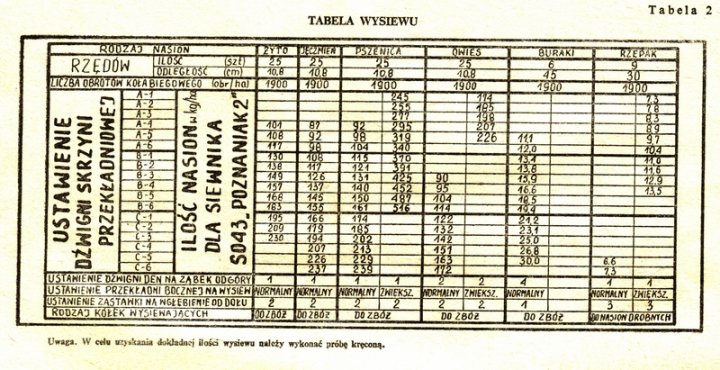 Tabela 2
TABELA WYSIEWU
RODZAJ NASION ŻYTO JĘCZMIEŃ PSZENICA OWIES BURAKI RZEPAK
RZĘDÓW ILOŚĆ (szt) 25 25 25 25 6 9
ODLEGŁOŚĆ (cm) 10,8 10,8 10,8 10,8 45 30
LICZBA OBROTÓW KOŁA BIEGOWEGO (obr/ha) 1900 1900 1900 1900 1900 1900
USTAWIENIE DŹWIGNI SKRZYNI PRZEKŁADNIOWEJ
ILOŚĆ NASION w kg/ha DLA SIEWNIKA S043 „POZNANIAK 2"
A-1 245 174 7,3
A-2 255 185 7,8
A-3 277 198 8,3
A-4 101 87 92 295 207 8,9
A-5 108 92 98 319 226 11,1 9,7
A-6 117 98 104 340 12,0 10,4
B-1 130 108 115 370 13,4 11,0
B-2 138 117 121 391 13,8 11,6
B-3 149 126 131 425 90 15,9 12,9
B-4 157 137 140 452 95 16,6 13,5
B-5 168 145 150 487 104 18,5
B-6 183 155 161 516 114 19,4
C-1 195 166 174 122 21,2
C-2 209 179 185 132 23,1
C-3 230 194 202 142 25,0
C-4 207 213 151 26,8
C-5 226 229 163 30,0 6,6
C-6 237 239 172 7,3
USTAWIENIE DŹWIGNI DEN NA ZĄBEK OD GÓRY 1 1 1 1 2 2 4 1 1
USTAWIENIE PRZEKŁADNI BOCZNEJ NA WYSIEW NORMALNY NORMALNY NORMALNY ZWIĘKSZ. NORMALNY ZWIĘKSZ. NORMALNY NORMALNY ZWIĘKSZ.
USTAWIENIE ZASTAWKI NA WGŁĘBIENIE OD DOŁU 2 2 2 2 2 2 1 3 3
RODZAJ KÓŁEK WYSIEWAJĄCYCH DO ZBÓŻ DO ZBÓŻ DO ZBÓŻ DO ZBÓŻ DO ZBÓŻ DO NASION DROBNYCH
Uwaga. W celu uzyskania dokładnej ilości wysiewu należy wykonać próbę kręconą.